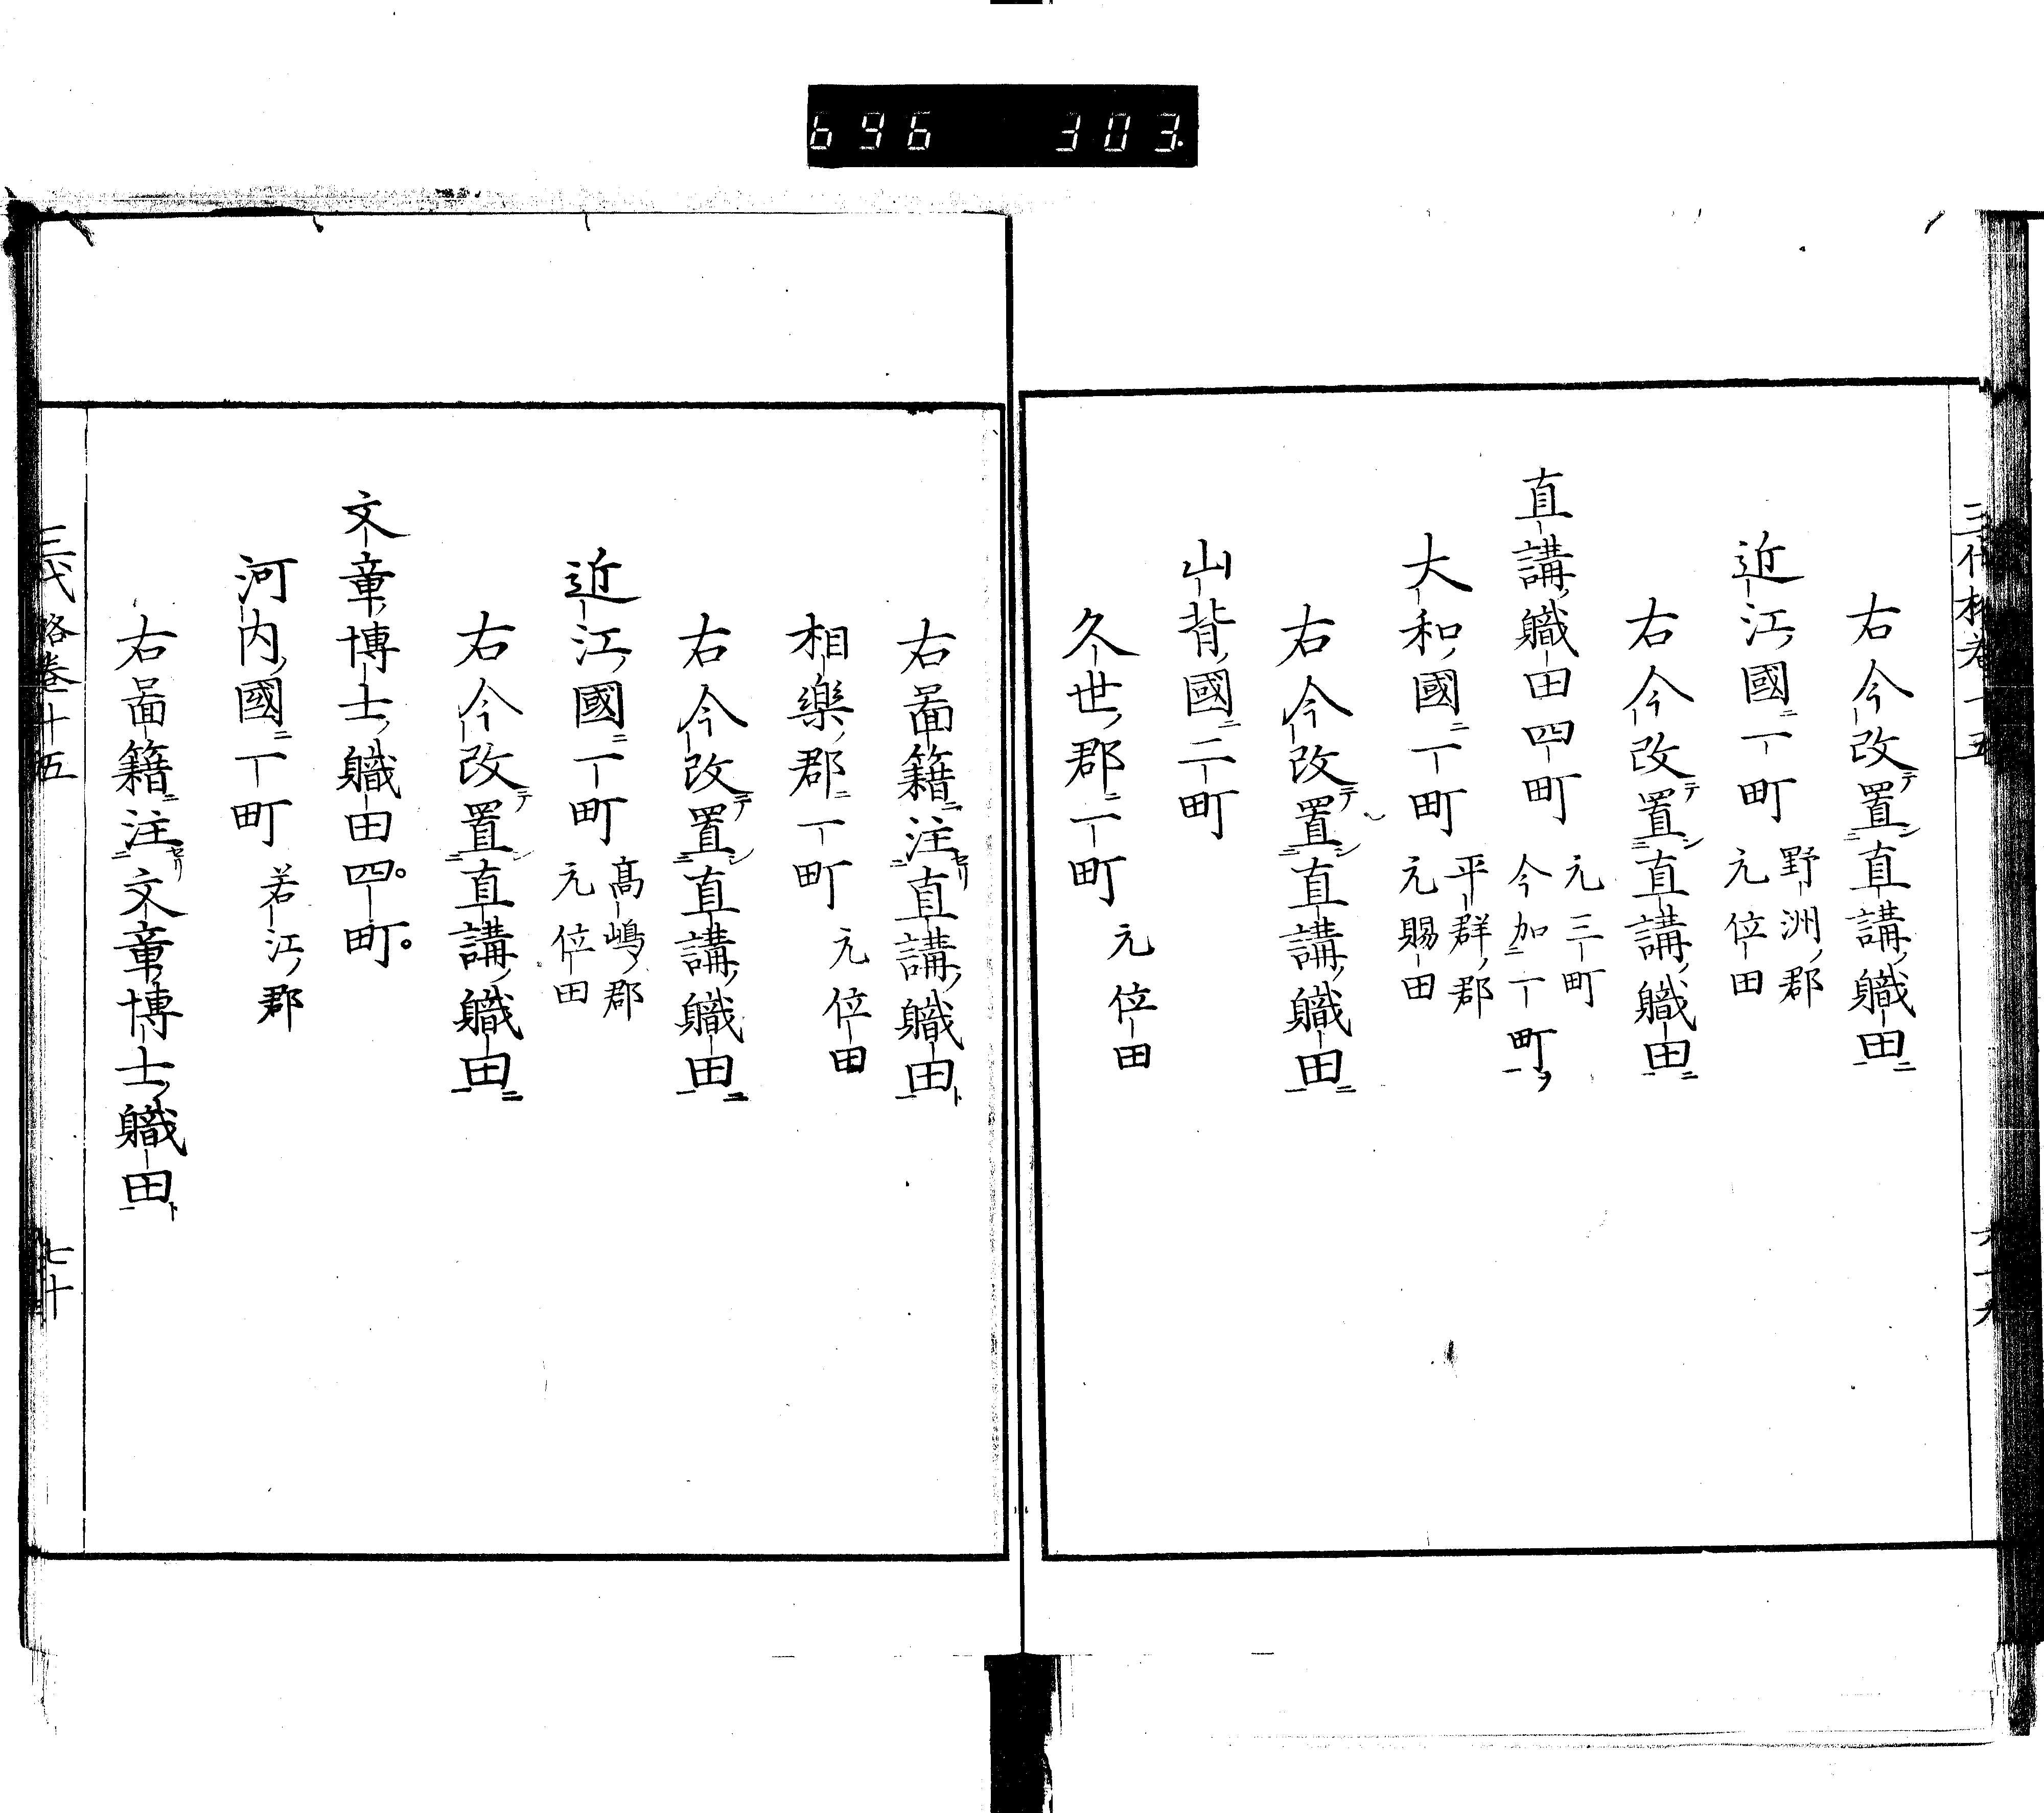 696 303.
三代格卷十五
右今改置直講職田
近江國一町 野洲郡 元位田
右今改置直講職田
直講職田四町 元三町 今加一町
大和國一町 平群郡 元賜田
右今改置直講職田
山背國二町
久世郡一町 元位田
右啚籍注直講職田
相樂郡一町 元位田
右今改置直講職田
近江國一町 髙嶋郡 元位田
右今改置直講職田
文章博士職田四町
河内國一町 若江郡
右啚籍注文章博士職田
三代格卷十五
七十